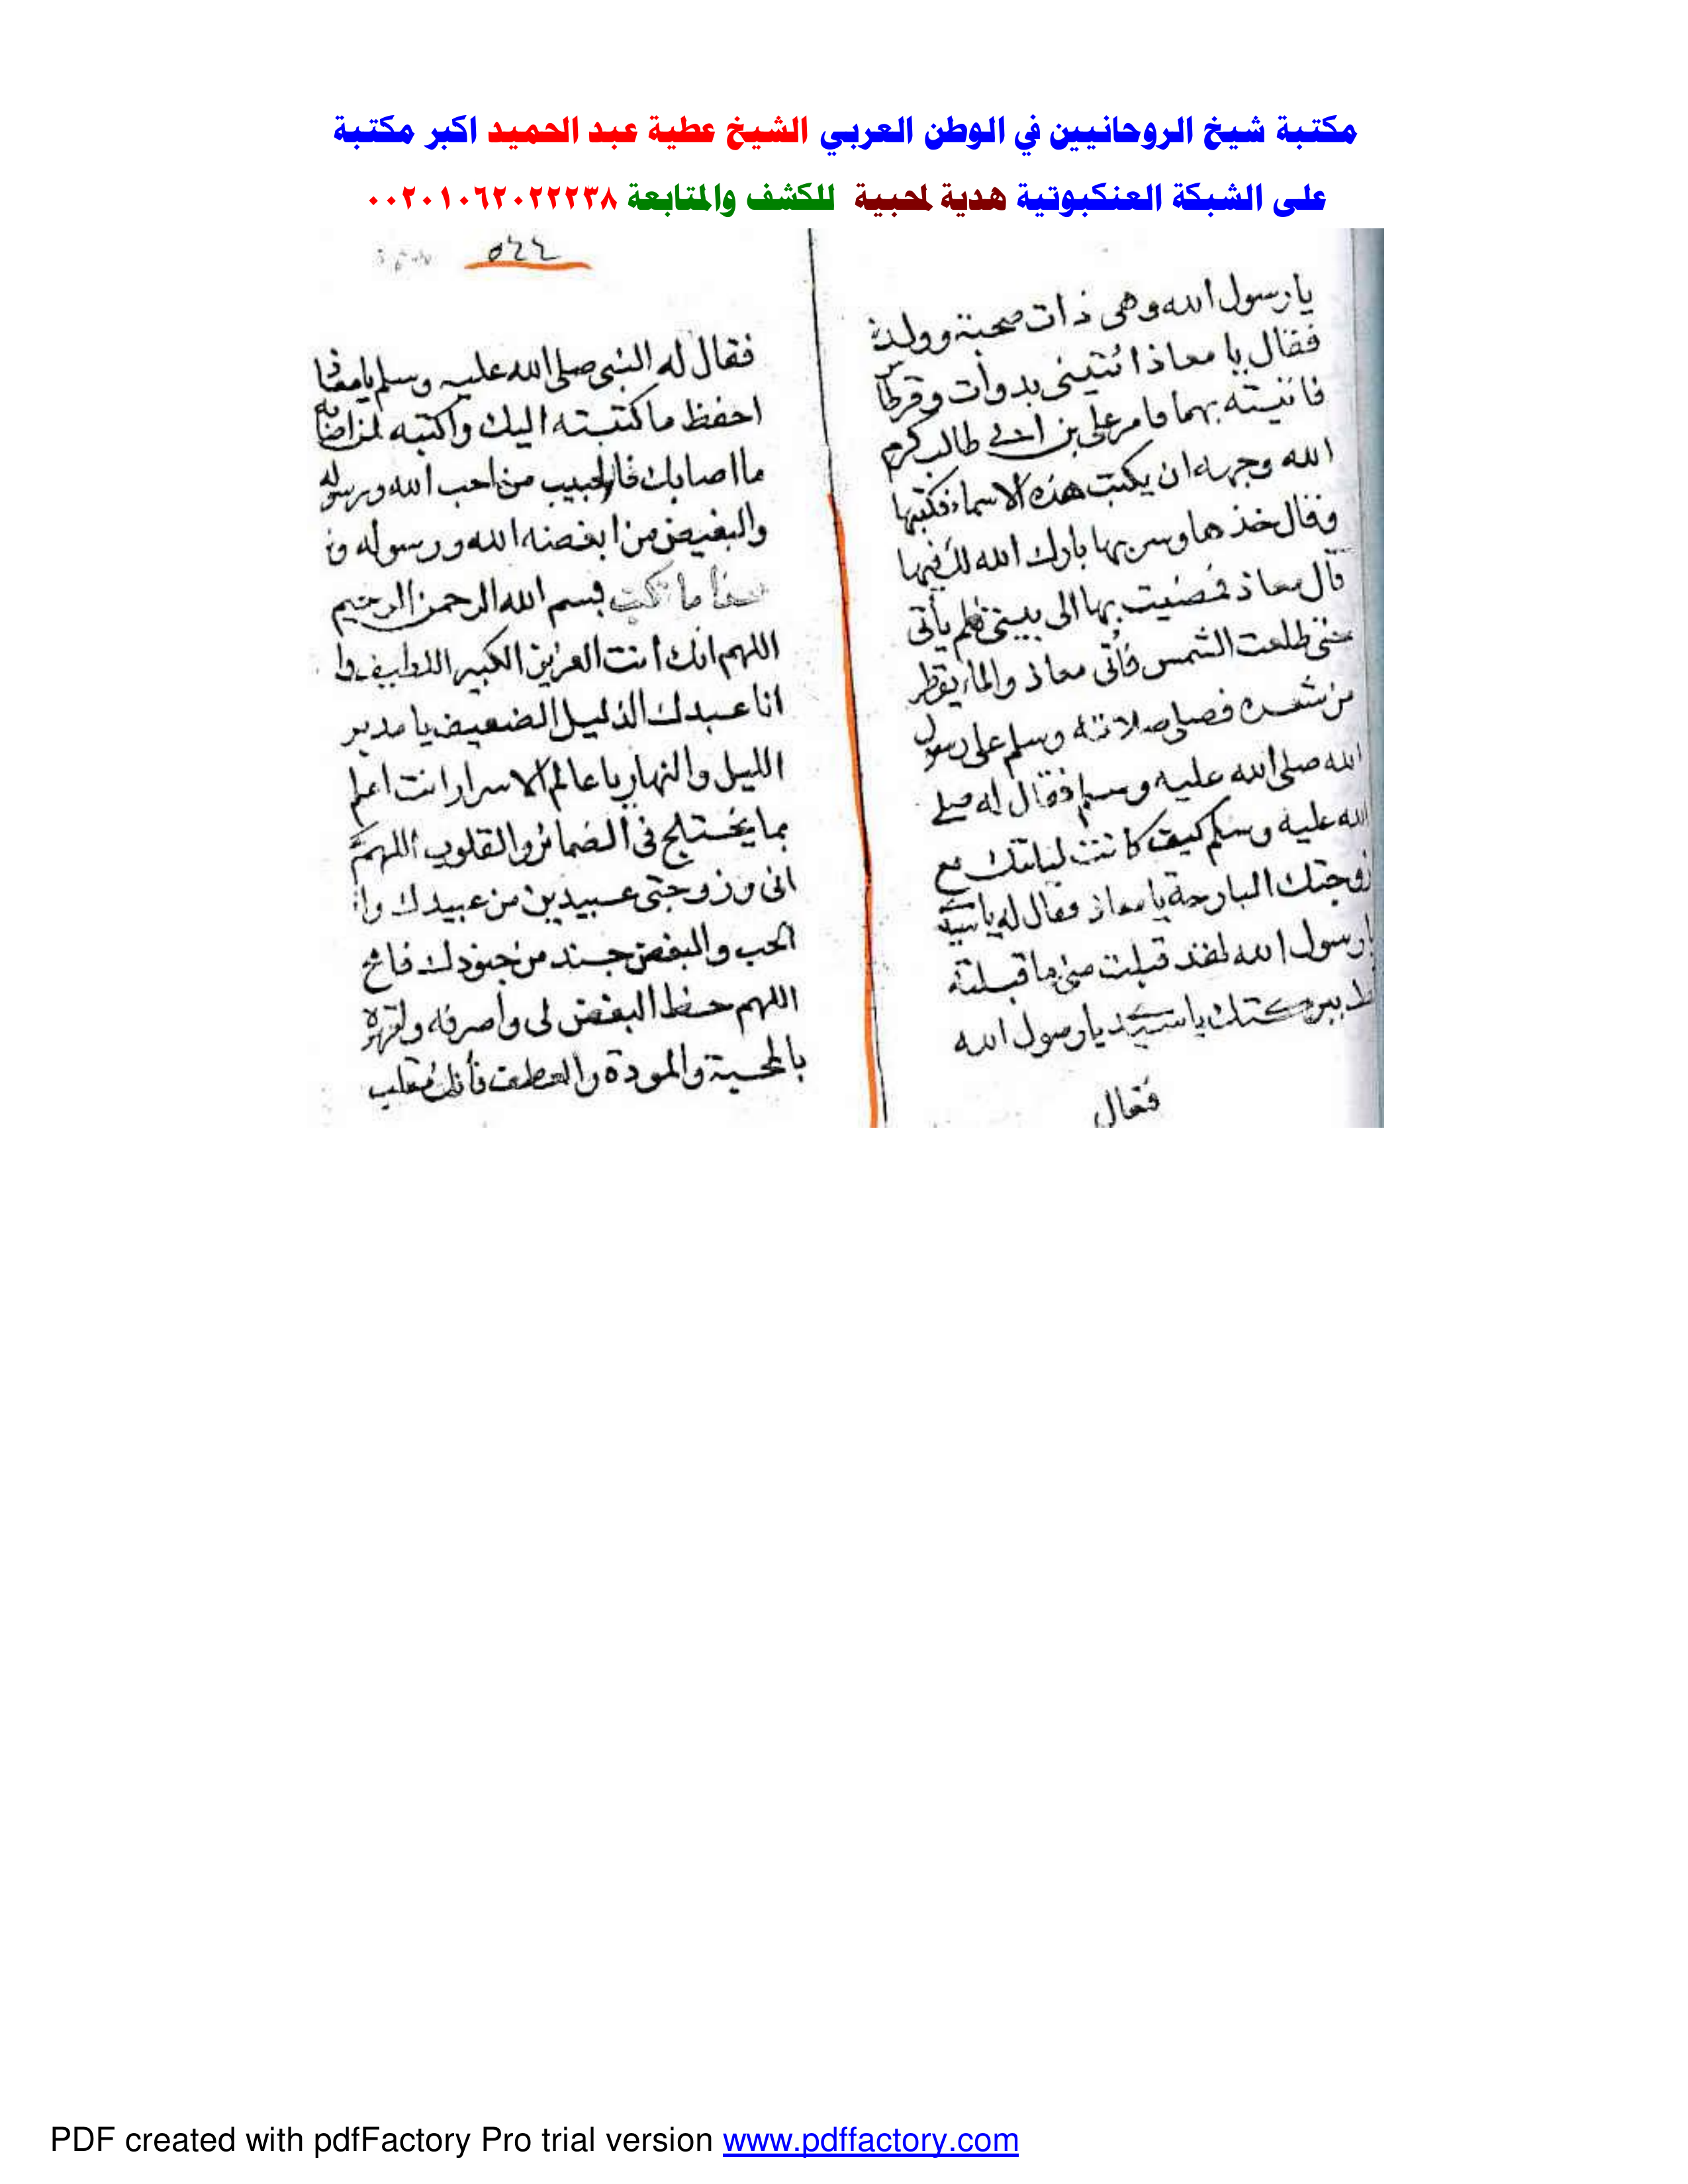 مكتبة شيخ الروحانيين في الوطن العربي الشيخ عطية عبد الحميد اكبر مكتبة
على الشبكة العنكبوتية هدية لمحبية للكشف والمتابعة ٠٠٢٠١٠٦٢٠٢٢٢٣٨
يا رسول الله وهى ذات صحبة وولد
فقال يا معاذ ائتينى بدوات وقرطاس
فاتيته بهما فامر على بن ابى طالب كرم
الله وجهه ان يكتب هذه الاسماء فكتبها
وقال خذها وسر بها بارك الله لك فيها
قال معاذ فمضيت بها الى بيتى فلم يأتى
حتى طلعت الشمس فأتى معاذ والماء يقطر
من شعره فصلى صلاته وسلم على رسول
الله صلى الله عليه وسلم فقال له صلى
الله عليه وسلم كيف كانت ليلتك مع
زوجتك البارحة يا معاذ فقال له يا سيد
يا رسول الله لقد قبلت منى ما قبلته
ببركتك يا سيد يا رسول الله
فقال
٥٤٤
فقال له النبى صلى الله عليه وسلم يا معاذ
احفظ ما كتبته اليك واكتبه لمن اصابه
ما اصابك فالحبيب من احب الله ورسوله
والبغيض من ابغضه الله ورسوله
هذا ما تكتب بسم الله الرحمن الرحيم
اللهم انك أنت العزيز الكبير اللطيف
انا عبدك الذليل الضعيف يا مدبر
الليل والنهار يا عالم الاسرار انت اعلم
بما يختلج فى الضمائر والقلوب اللهم
انى وزوجتى عبيدين من عبيدك وان
الحب والبغض جند من جنودك فامح
اللهم حظ البغض لى وأصرفه واقهره
بالمحبة والمودة والعطف فأنك مقلب
PDF created with pdfFactory Pro trial version www.pdffactory.com